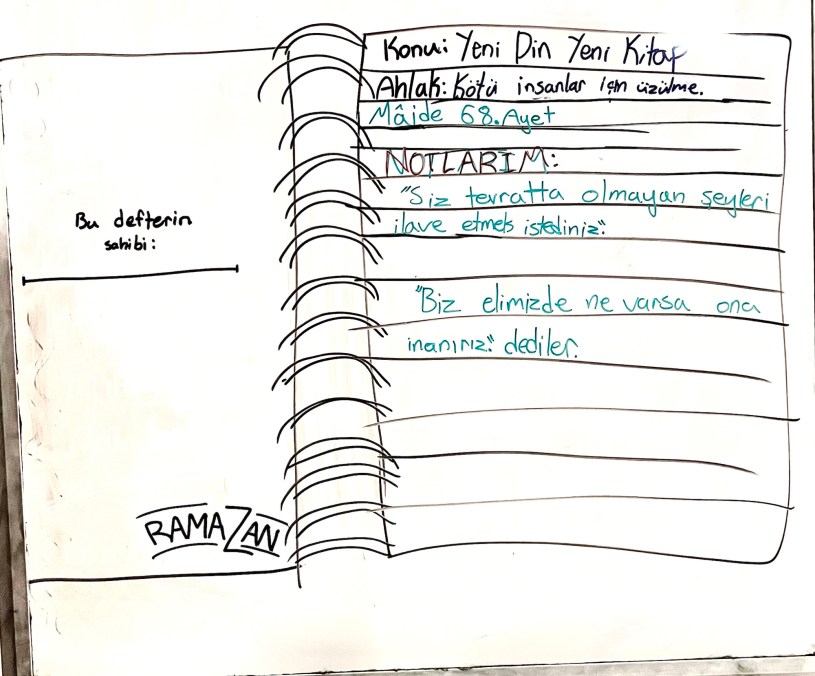 Bu defterin
sahibi:
RAMAZAN
Konu: Yeni Din Yeni Kitap
Ahlak: Kötü insanlar için üzülme.
Mâide 68.Ayet
NOTLARIM:
"Siz tevratta olmayan şeyleri
ilave etmek istediniz."
"Biz elimizde ne varsa ona
inanırız." dediler.